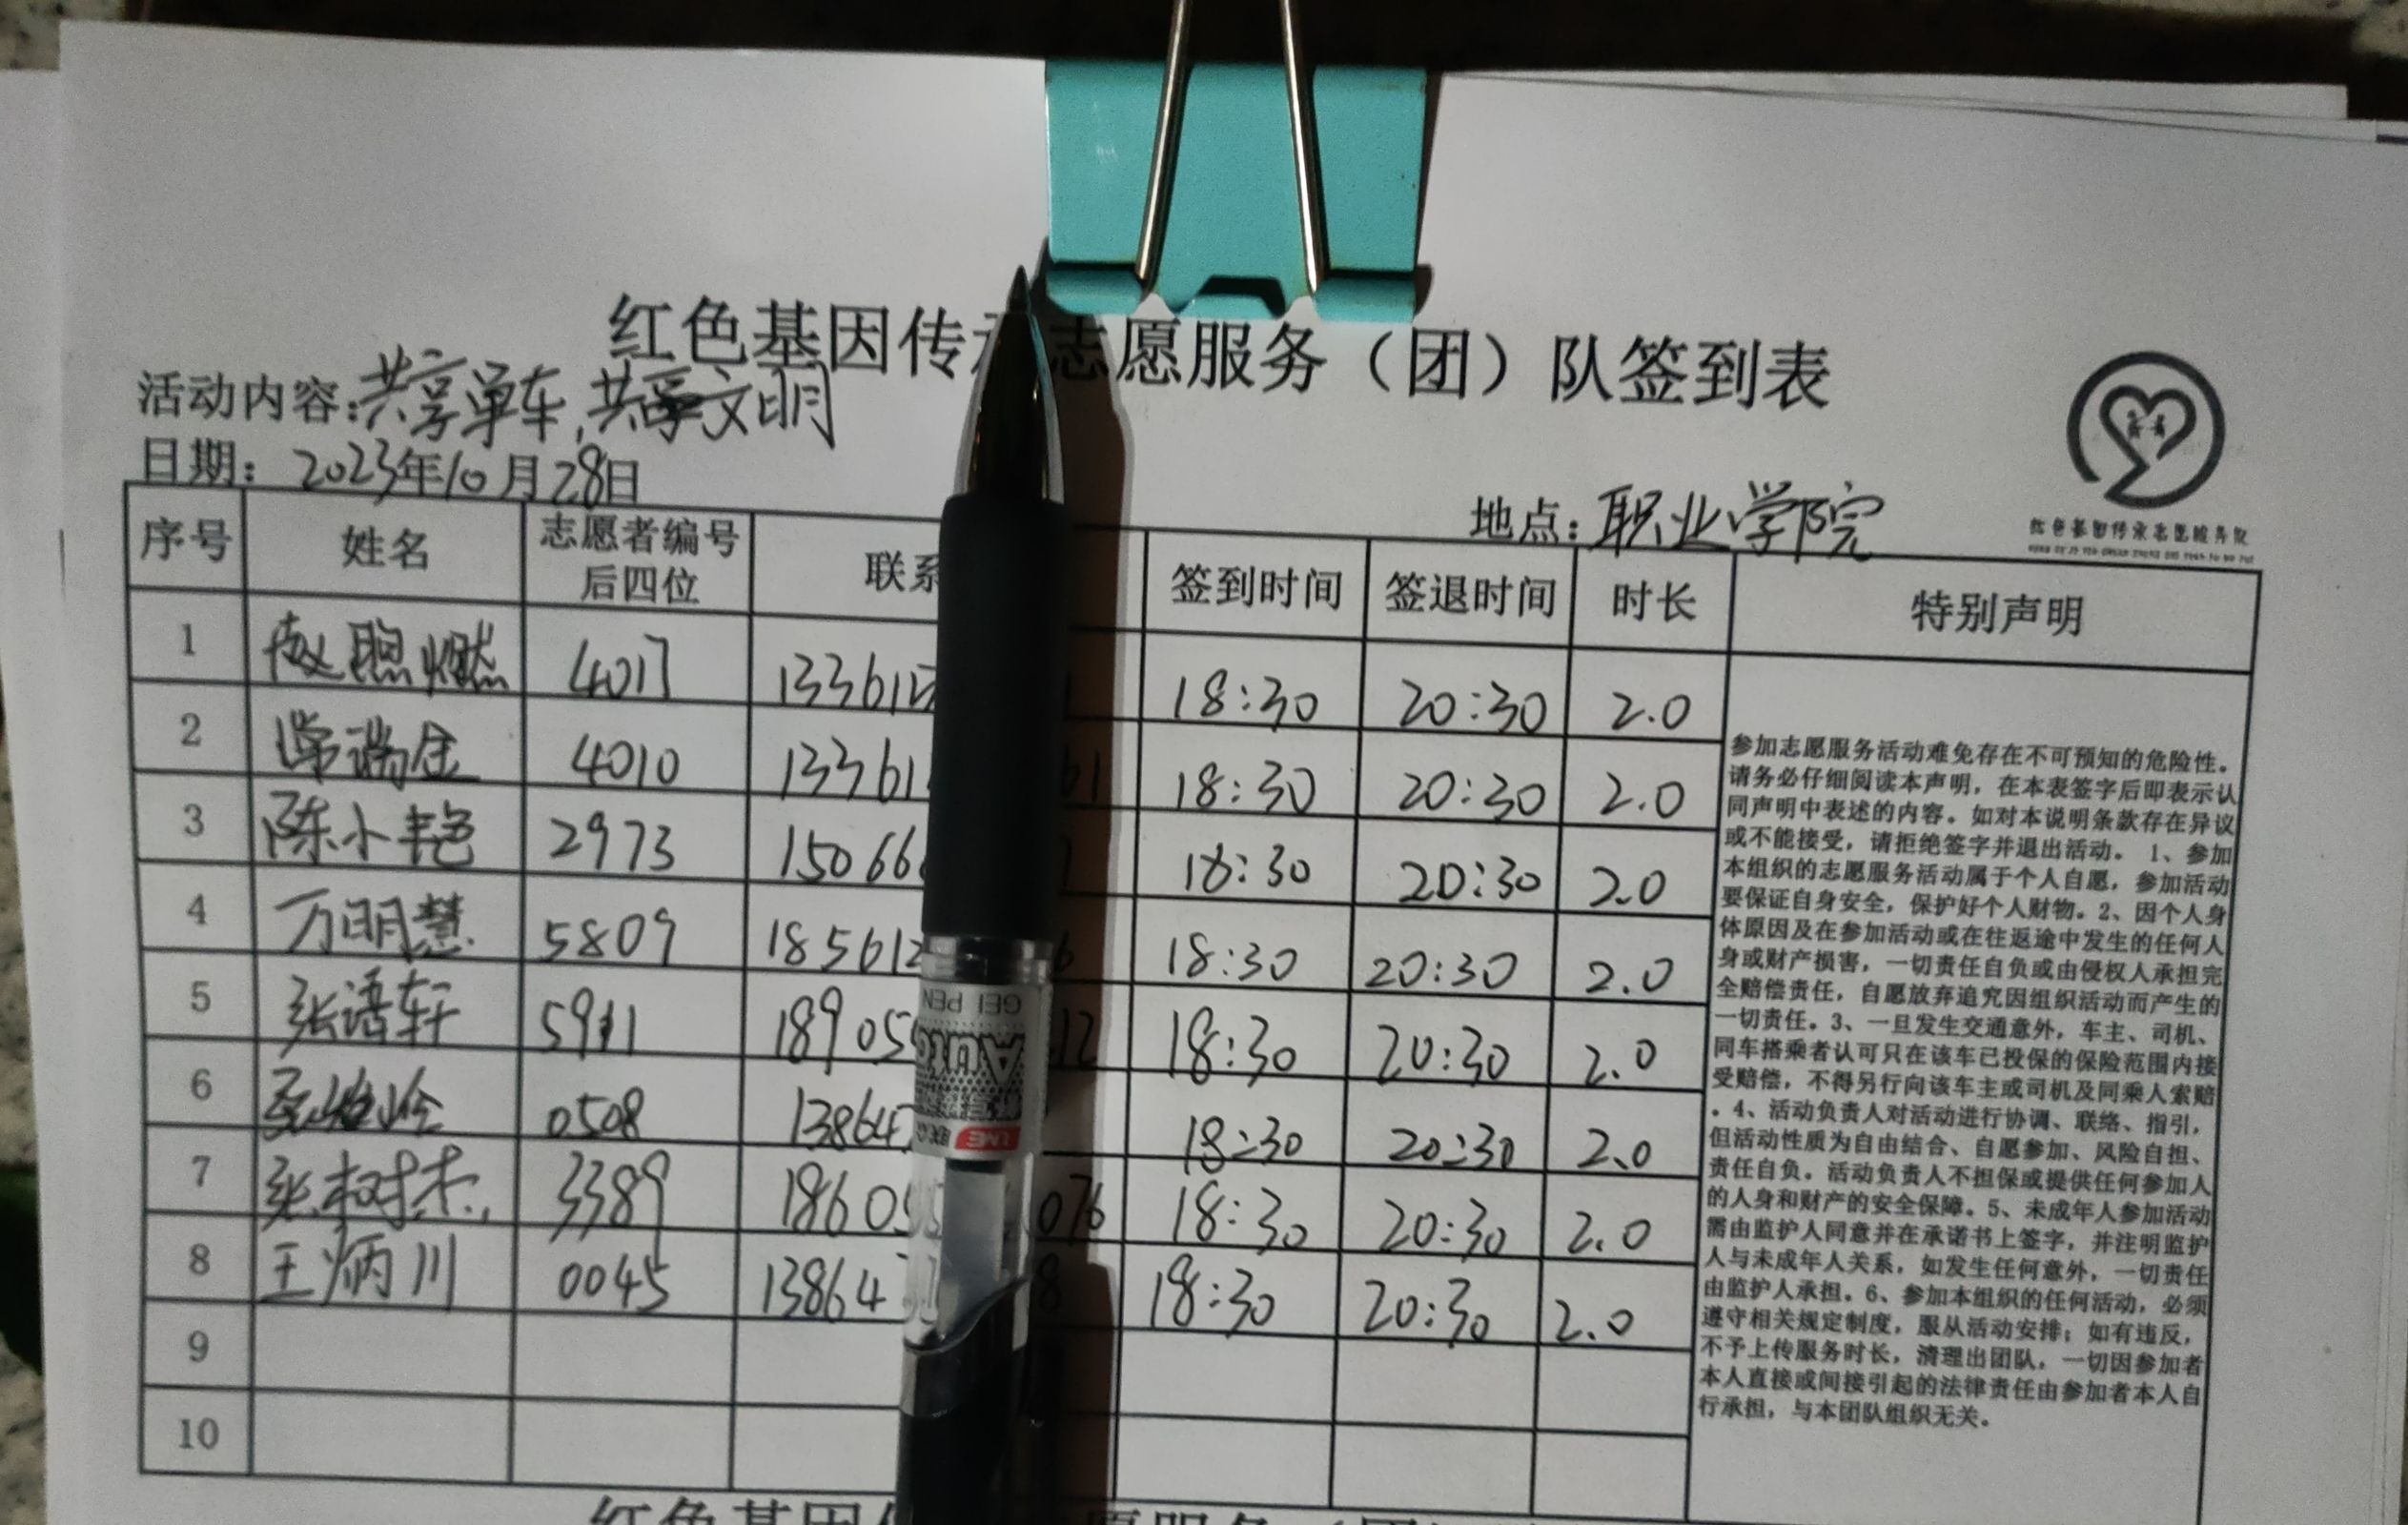 红色基因传 志愿服务（团）队签到表
活动内容：共享单车，共享文明
日期：2023年10月28日
地点：职业学院
红色基因传承志愿服务队
序号 姓名 志愿者编号后四位 联系 签到时间 签退时间 时长 特别声明
1 4017 133612 18:30 20:30 2.0
2 常瑞金 4010 13361 61 18:30 20:30 2.0
3 陈小艳 2973 15066 18:30 20:30 2.0
4 万明慧 5809 185612 6 18:30 20:30 2.0
5 张语轩 5911 18905 12 18:30 20:30 2.0
6 0508 13864 18:30 20:30 2.0
7 张树杰 3389 1860 076 18:30 20:30 2.0
8 王炳川 0045 13864 8 18:30 20:30 2.0
9
10
参加志愿服务活动难免存在不可预知的危险性。
请务必仔细阅读本声明，在本表签字后即表示认
同声明中表述的内容。如对本说明条款存在异议
或不能接受，请拒绝签字并退出活动。 1、参加
本组织的志愿服务活动属于个人自愿，参加活动
要保证自身安全，保护好个人财物。2、因个人身
体原因及在参加活动或在往返途中发生的任何人
身或财产损害，一切责任自负或由侵权人承担完
全赔偿责任，自愿放弃追究因组织活动而产生的
一切责任。3、一旦发生交通意外，车主、司机、
同车搭乘者认可只在该车已投保的保险范围内接
受赔偿，不得另行向该车主或司机及同乘人索赔
。4、活动负责人对活动进行协调、联络、指引，
但活动性质为自由结合、自愿参加、风险自担、
责任自负。活动负责人不担保或提供任何参加人
的人身和财产的安全保障。5、未成年人参加活动
需由监护人同意并在承诺书上签字，并注明监护
人与未成年人关系，如发生任何意外，一切责任
由监护人承担。6、参加本组织的任何活动，必须
遵守相关规定制度，服从活动安排；如有违反，
不予上传服务时长，清理出团队，一切因参加者
本人直接或间接引起的法律责任由参加者本人自
行承担，与本团队组织无关。
GEL PEN
Auto
LME